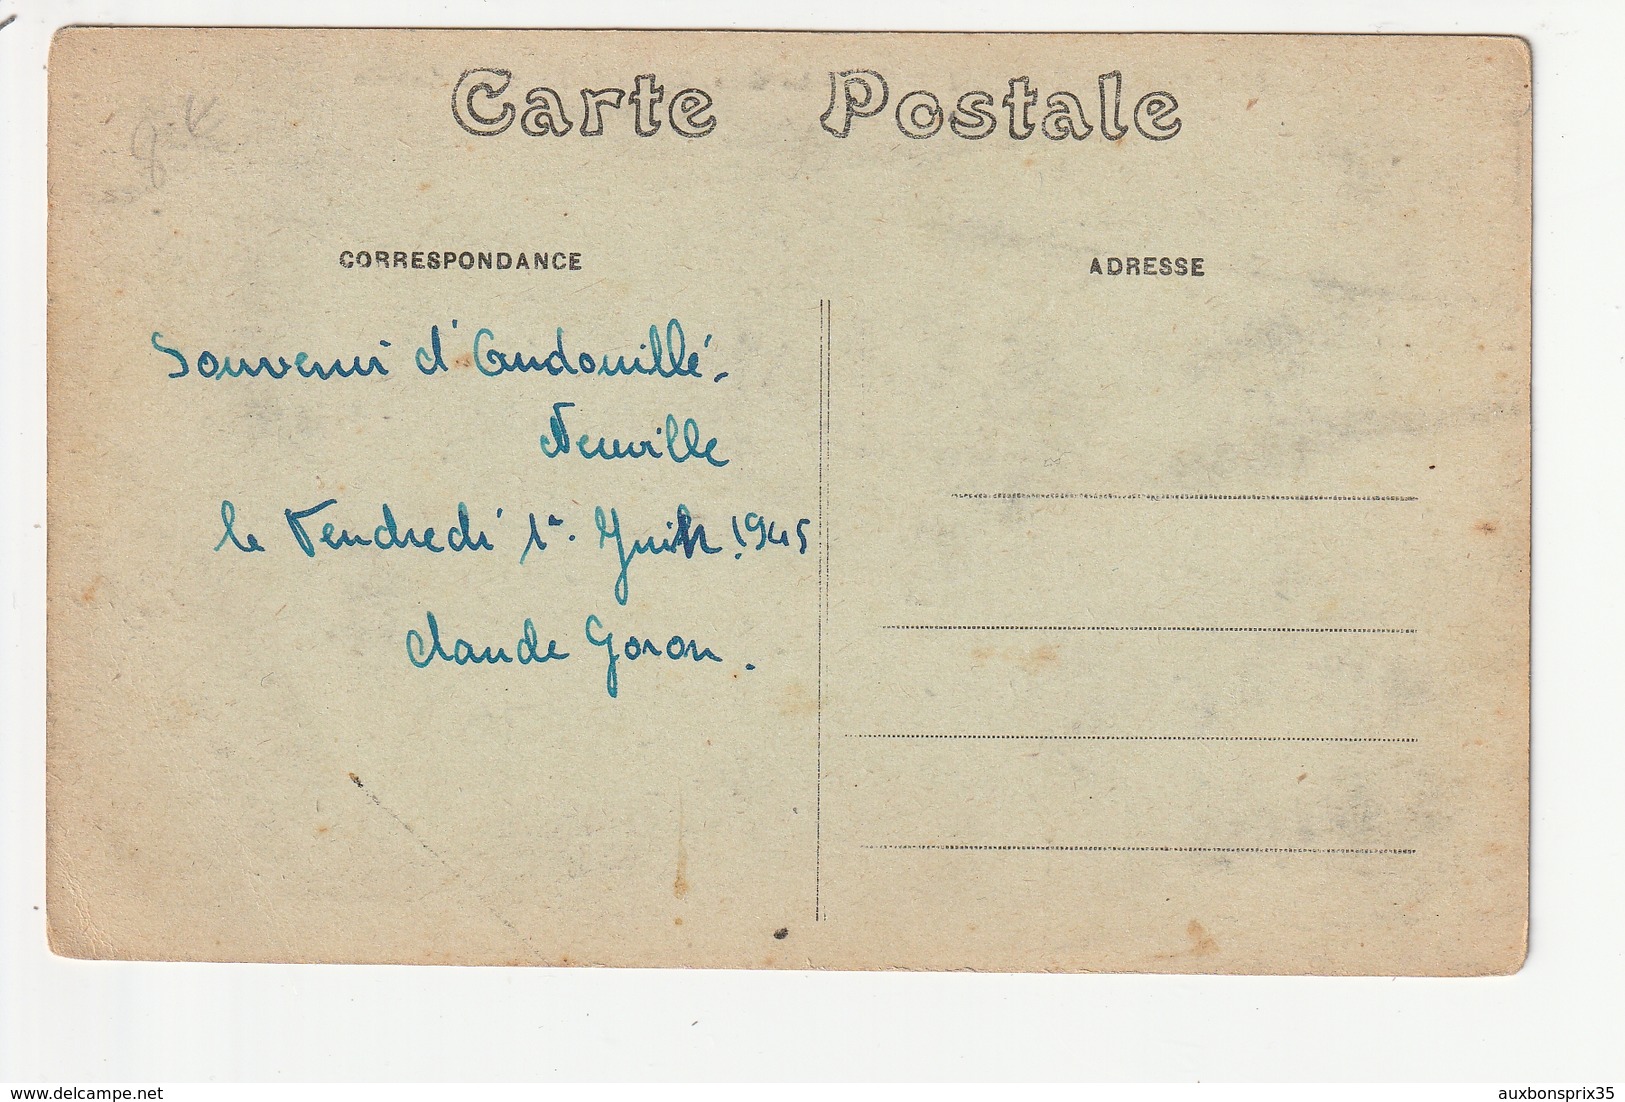 Carte Postale
CORRESPONDANCE
ADRESSE
Souvenir d'Andouillé-
Neuville
le Vendredi 1er Juin 1945
Claude Goron.
delcampe.net
auxbonsprix35